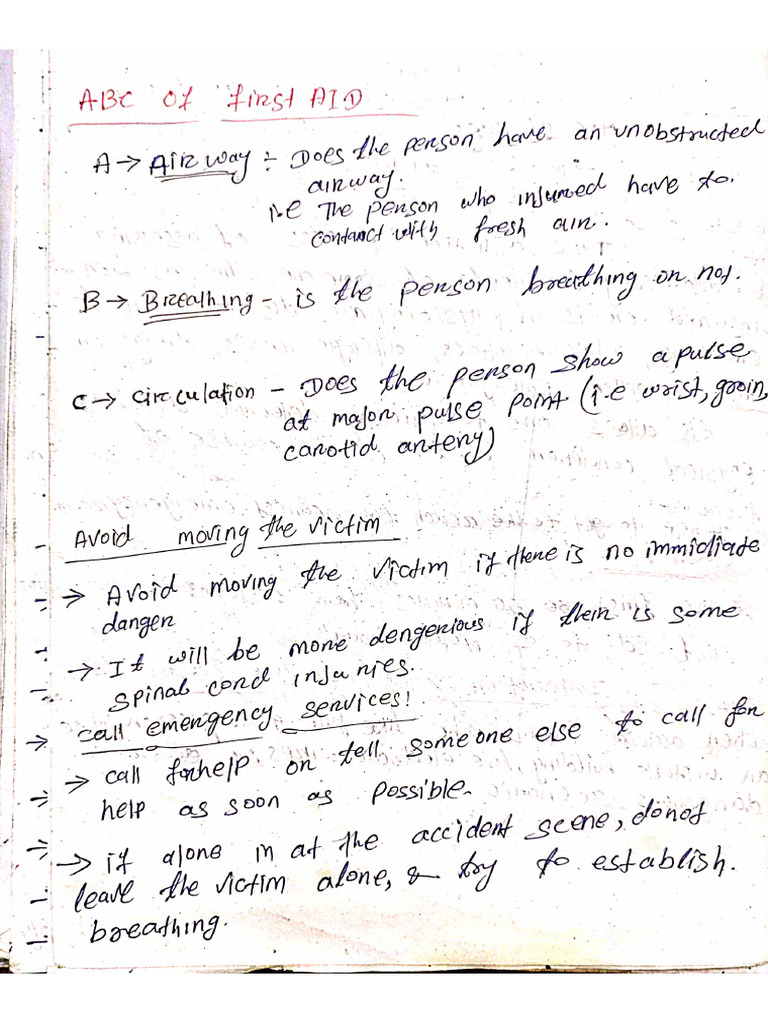 ABC of first AID
A → Airway ÷ Does the person have an unobstructed
airway.
i.e The person who injured have to
contanct with fresh air.
B → Breathing - is the person breathing or not.
C → circulation - Does the person show a pulse
at major pulse point (i.e wrist, groin,
carotid artery)
Avoid moving the victim
→ Avoid moving the victim if there is no immidiate
danger
→ It will be more dengerious if their is some
spinal cord injuries.
→ call emergency services!
→ call for help or tell someone else to call for
help as soon as possible.
→ if alone in at the accident scene, do not
leave the victim alone, & try to establish.
breathing.